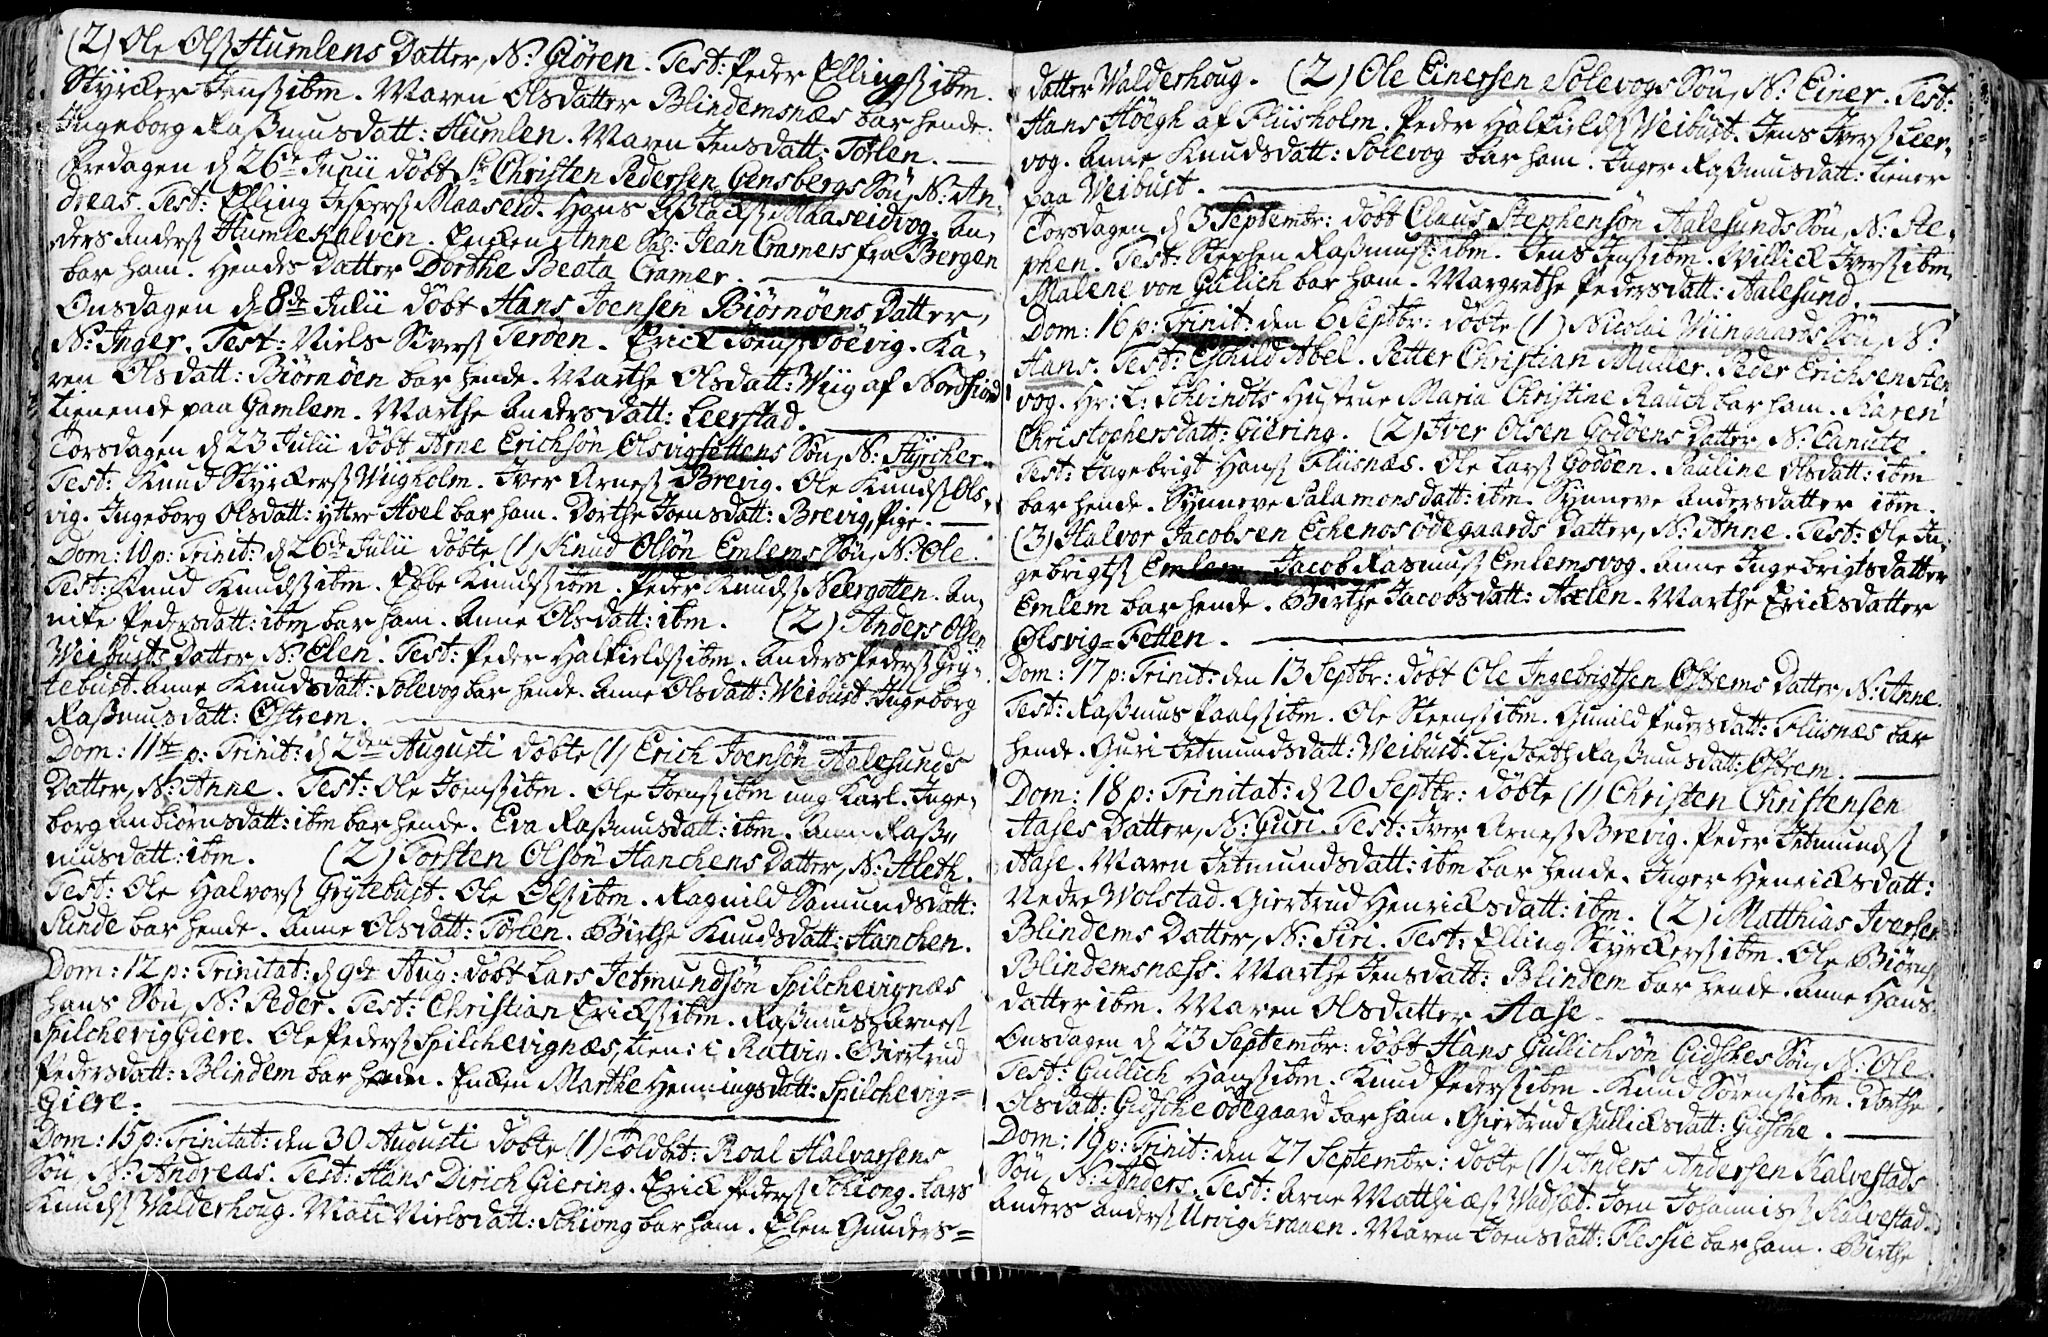 (2) Ole Olsß Humlens Datter, N: Giören. Test: Peder Ellingsß ibm.
Styrcker Jensß ibm. Maren Olsdatter Blindemsnæs bar hende.
Ingeborg Raßmusdatt: Humlen. Maren Jensdatt: Törlen.
Fredagen d 26de Junii döbt Sr Christen Pedersen Gensbergs Sön, N: An,
dreas. Test: Elling Jesperß Maaseid. Hans Aßlachß Maaseidvog. An,
ders Anderß Humlekalven. Encken Anne Sal: Jean Cramers fra Bergen
bar ham. Hendes Datter Dorthe Beata Cramer.
Onsdagen d 8de Julii döbt Hans Joensen Biörnöens Datter,
N: Inger. Test: Niels Siverß Teröen. Erick Joensß Söevig. Ka,
ren Olsdatt: Biörnöen bar hende. Marthe Olsdatt: Wiig af Nordfiord
tienende paa Gamlem. Marthe Andersdatt: Leerstad.
Torsdagen d 23 Julii döbt Arne Erichsön Olsvigfettens Sön, N: Styrcher.
Test: Knud Styrckerß Wiigholm. Iver Arneß Brevig. Ole Knudsß Ols,
vig. Ingeborg Olsdatt: yttre Hoel bar ham. Dorthe Joensdatt: Brevig, Pige.
Dom: 10 p: Trinit: d 26de Julii döbte (1) Knud Olsön Emlems Sön, N: Ole.
Test: Knud Knudsß ibm. Ebbe Knudsß ibm. Peder Knudsß Neergotten. An,
nike Pedersdatt: ibm bar ham. Anne Olsdatt: ibm. (2) Anders Olsen
Weibusts Datter, N: Elen. Test: Peder Halkieldsß ibm. Anders Pedersß Gry,
tebust. Anne Knudsdatt: Solevog bar hende. Anne Olsdatt: Weibust. Ingeborg
Raßmusdatt: Östrem.
Dom: 11te p: Trinit: d 2den Augusti döbte (1) Erich Joensön Aalesunds
Datter, N: Anne. Test: Ole Joensß ibm. Ole Joensß ibm ung Karl. Inge,
borg Anbiörnsdatt: ibm bar hende. Eva Raßmusdatt: ibm. Ann Raß,
musdatt: ibm. (2) Torsten Olsön Hanchens Datter, N: Aleth.
Test: Ole Halvorsß Grytebust. Ole Olsß ibm. Ragnild Samundsdatt:
Sunde bar hende. Anne Olsdatt: Törlen. Birthe Knudsdatt: Hanchen.
Dom: 12 p: Trinitat: d 9de Aug: döbt Lars Jetmundsön Spilchevignæs
hans Sön, N: Peder. Test: Christian Ericksß ibm. Raßmus Arneß
Spilchevig Giere. Ole Pedersß Spilchevignæs, tien: i Ratvin. Giertrud
Pedersdatt: Blindem bar hende. Encken Marthe Henningsdatt: Spilchevig=
Giere.
Dom: 15 p: Trinitat: den 30 Augusti döbte (1) Toldbt: Roal Halvarsens
Sön, N: Andreas. Test: Hans Dirich Giering. Erick Pedersß Schiong. Lars
Knudsß Walderhoug. Mali Nielsdatt: Schiong bar ham. Elen Gunders=
datter Walderhoug. (2) Ole Einersen Solevogs Sön, N: Einer. Test:
Hans Höegh af Fliisholm. Peder Halkieldsß Weibust. Jens Iversß Leer,
vog. Anne Knudsdatt: Solevog bar ham. Inger Raßmusdatt: tiener
paa Weibust.
Torsdagen d 3 Septembr: döbt Claus Stephensön Aalesunds Sön, N: Ste,
phen. Test: Stephen Raßmusß ibm. Jens Jensß ibm. Willick Iversß ibm.
Malene von Gülich bar ham. Margrethe Pedersdatt: Aalesund.
Dom: 16 p: Trinit: den 6 Septbr: döbte (1) Nicolai Wiingaards Sön, N:
Hans. Test: Eschild Abel. Petter Christian Müller. Peder Erichsen Sten
vog. Hr: L: Schvindts Hustrue Maria Christine Rauch bar ham. Karen
Christophersdatt: Giering. (2) Iver Olsen Godöens Datter N: Canute.
Test: Ingebrigt Hansß Fliisnæs. Ole Larsß Godöen. Pauline Olsdatt: ibm
bar hende. Synneve Salamonsdatt: ibm. Synneve Andersdatter ibm.
(3) Halvor Jacobsen Echenosödegaards Datter, N: Anne. Test: Ole In,
gebrigtsß Emlem. Jacob Rasmusß Emlemsvog. Anne Ingebrigtsdatter
Emlem bar hende. Birthe Jacobsdatt: Axlen. Marthe Ericksdatter
Olsvig=Fetten.
Dom: 17 p: Trinit: den 13 Septbr: döbt Ole Ingebrigtsen Östrems Datter, N: Anne.
Test: Raßmus Paalsß ibm. Ole Steensß ibm. Gunild Pedersdatt: Fliisnæs bar
hende. Guri Jetmundsdatt: Weibust. Lisbeth Raßmusdatt: Östrem.
Dom: 18 p: Trinitat: d 20 Septbr: döbte (1) Christen Christensen
Aases Datter, N: Guri. Test: Iver Arneß Brevig. Peder Jetmundsß
Aase. Maren Jetmundsdatt: ibm bar hende. Inger Henricksdatt:
Nedre Wolstad. Giertrud Henricksdatt: ibm. (2) Matthias Iversen
Blindems Datter, N: Siri. Test: Elling Styrckersß ibm. Ole Biörnsß
Blindemsnæss. Marthe Jensdatt: Blindem bar hende. Anne Hans,
datter ibm. Maren Olsdatter Aase.
Onsdagen d 23 Septembr: döbt Hans Gullichsön Gidsches Sön, N: Ole.
Test: Gullich Hansß ibm. Knud Pedersß ibm. Knud Sörensß ibm. Dorthe
Olsdatt: Gidsche Ödegaard bar ham. Giertrud Gullicksdatt: Gidsche.
Dom: 19 p: Trinit: den 27 Septembr: döbte (1) Anders Andersen Kalvestads
Sön, N: Anders. Test: Arne Matthiæsß Wadsæt. Joen Johannisß Kalvestad.
Anders Andersß Urvig Kraaen. Maren Joensdatt: Flessie bar ham. Birthe